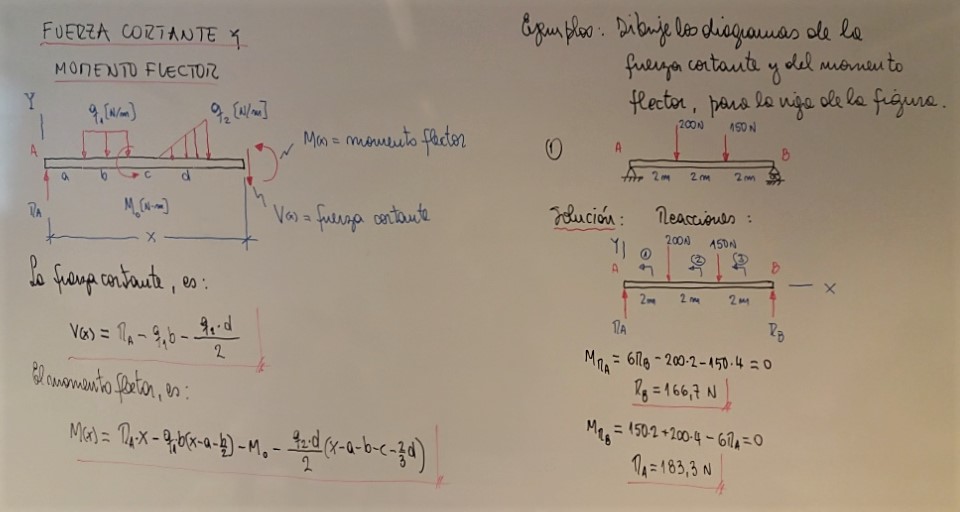 FUERZA CORTANTE Y
MOMENTO FLECTOR
Y
q₁ [N/m]
q₂ [N/m]
A
a b c d
M(x) = momento flector
R_A
M₀ [N·m]
V(x) = fuerza cortante
x
La fuerza cortante, es:
V(x) = R_A - q₁b - q₂·d/2
El momento flector, es:
M(x) = R_A·x - q₁b(x-a-b/2) - M₀ - q₂·d/2 (x-a-b-c-2/3 d)
Ejemplos: Dibuje los diagramas de la
fuerza cortante y del momento
flector, para la viga de la figura.
①
200N 150N
A B
2m 2m 2m
Solución: Reacciones:
Y
200N 150N
① ② ③
A B
x
2m 2m 2m
R_A R_B
M_R_A = 6R_B - 200·2 - 150·4 = 0
R_B = 166,7 N
M_R_B = 150·2 + 200·4 - 6R_A = 0
R_A = 183,3 N